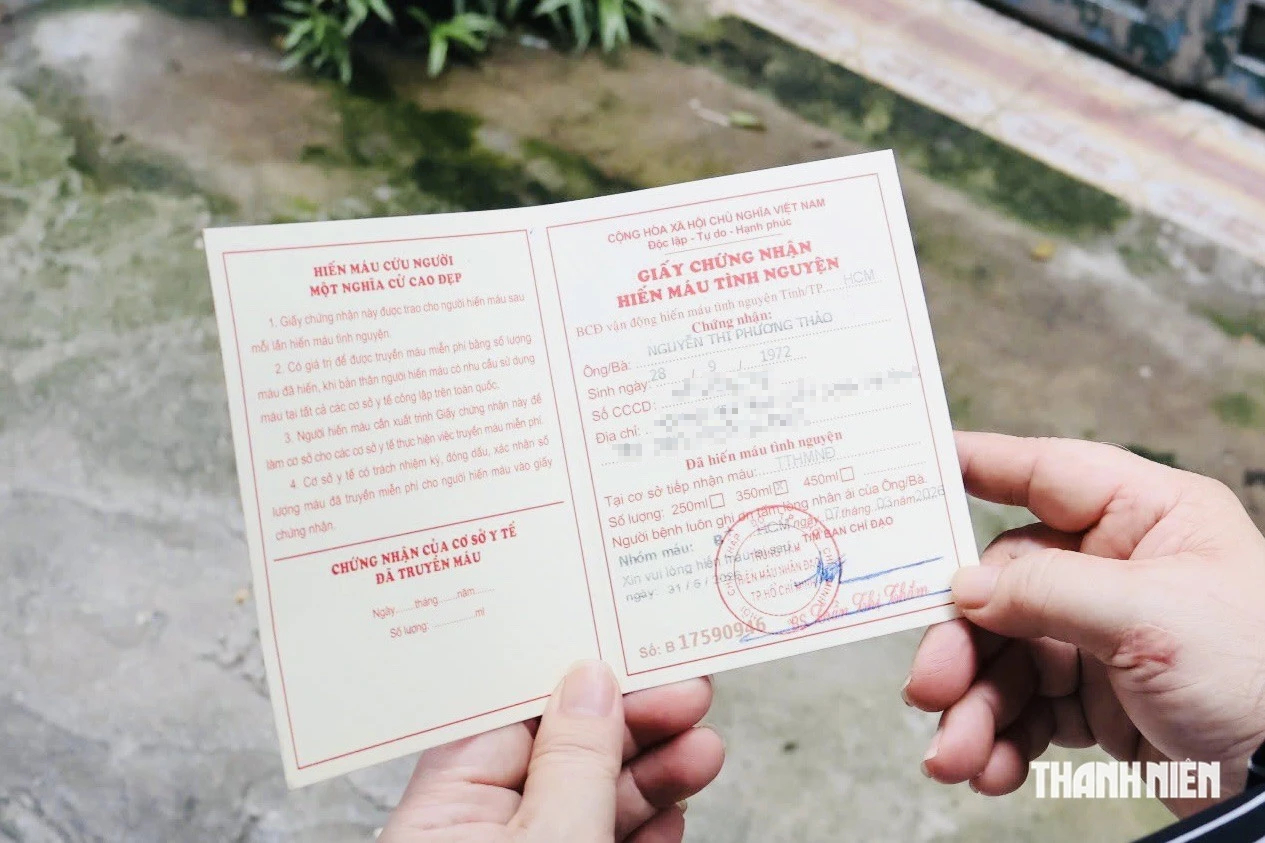 HIẾN MÁU CỨU NGƯỜI
MỘT NGHĨA CỬ CAO ĐẸP
1. Giấy chứng nhận này được trao cho người hiến máu sau
mỗi lần hiến máu tình nguyện.
2. Có giá trị để được truyền máu miễn phí bằng số lượng
máu đã hiến, khi bản thân người hiến máu có nhu cầu sử dụng
máu tại tất cả các cơ sở y tế công lập trên toàn quốc.
3. Người hiến máu cần xuất trình Giấy chứng nhận này để
làm cơ sở cho các cơ sở y tế thực hiện việc truyền máu miễn phí.
4. Cơ sở y tế có trách nhiệm ký, đóng dấu, xác nhận số
lượng máu đã truyền miễn phí cho người hiến máu vào giấy
chứng nhận.
CHỨNG NHẬN CỦA CƠ SỞ Y TẾ
ĐÃ TRUYỀN MÁU
Ngày......tháng......năm......
Số lượng: ..............ml
CỘNG HÒA XÃ HỘI CHỦ NGHĨA VIỆT NAM
Độc lập - Tự do - Hạnh phúc
GIẤY CHỨNG NHẬN
HIẾN MÁU TÌNH NGUYỆN
BCĐ vận động hiến máu tình nguyện Tỉnh/TP HCM
Chứng nhận:
Ông/Bà: NGUYỄN THỊ PHƯƠNG THẢO
Sinh ngày: 28 / 9 / 1972
Số CCCD:
Địa chỉ:
Đã hiến máu tình nguyện
Tại cơ sở tiếp nhận máu: TTHMNĐ
Số lượng: 250ml 350ml 450ml
Người bệnh luôn ghi ơn tấm lòng nhân ái của Ông/Bà.
HCM ngày 07 tháng 03 năm 2026
Nhóm máu: B
T/M BAN CHỈ ĐẠO
Xin vui lòng hiến máu lại sau
ngày: 31/5/
HIẾN MÁU NHÂN ĐẠO
TP.HỒ CHÍ MINH
BS Trần Thị Thắm
Số: B 17590946
THANH NIÊN